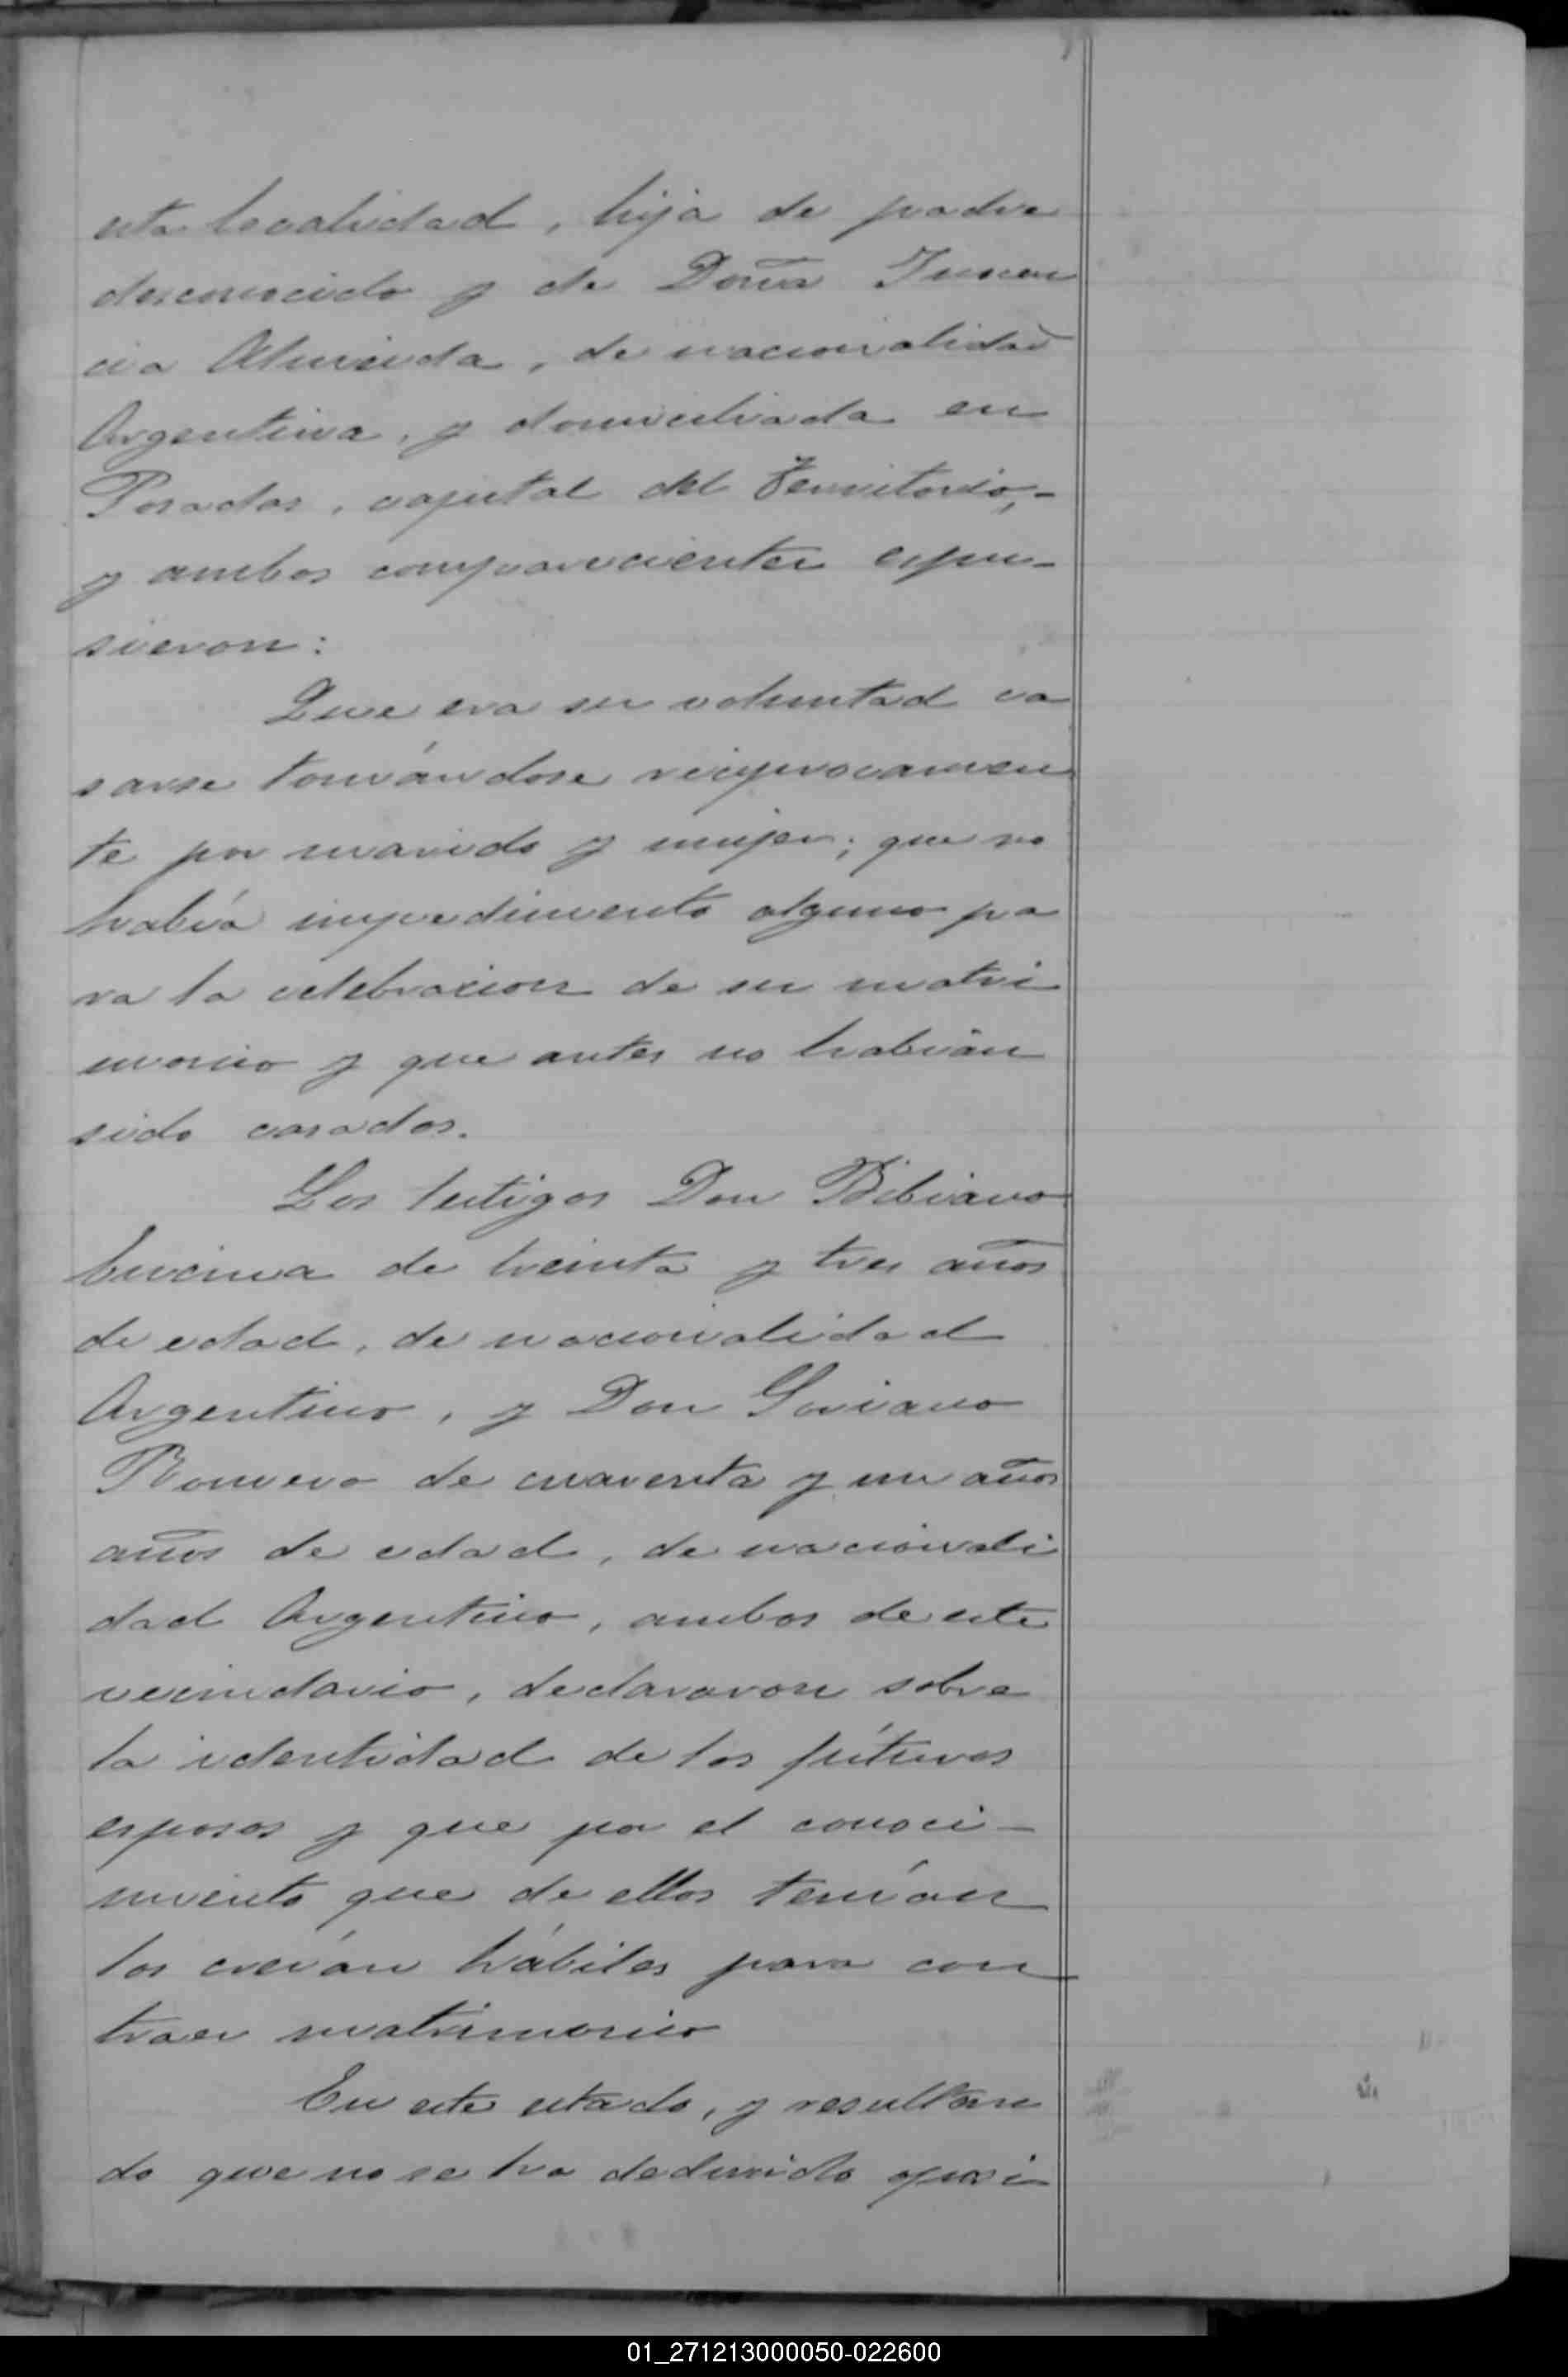 esta localidad, hija de padre
desconocido y de Doña Inocen
cia Almeida, de nacionalidad
Argentina, y domiciliada en
Posadas, capital del Territorio,-
y ambos comparecientes espu-
sieron:
Que era su voluntad ca
sarse tomándose reciprocamen
te por marido y mujer; que no
había impedimento alguno pa
ra la celebracion de su matri
monio y que antes no habian
sido casados.
Los testigos Don Bibiano
Encina de treinta y tres años
de edad, de nacionalidad
Argentino, y Don Soriano
Romero de cuarenta y un años
años de edad, de nacionali
dad Argentino, ambos de este
vecindario, declararon sobre
la identidad de los fúturos
esposos y que por el conoci-
miento que de ellos tenían
los creían hábiles para con
traer matrimonio
En este estado, y resultan
do que no se ha deducido oposi
01_271213000050-022600